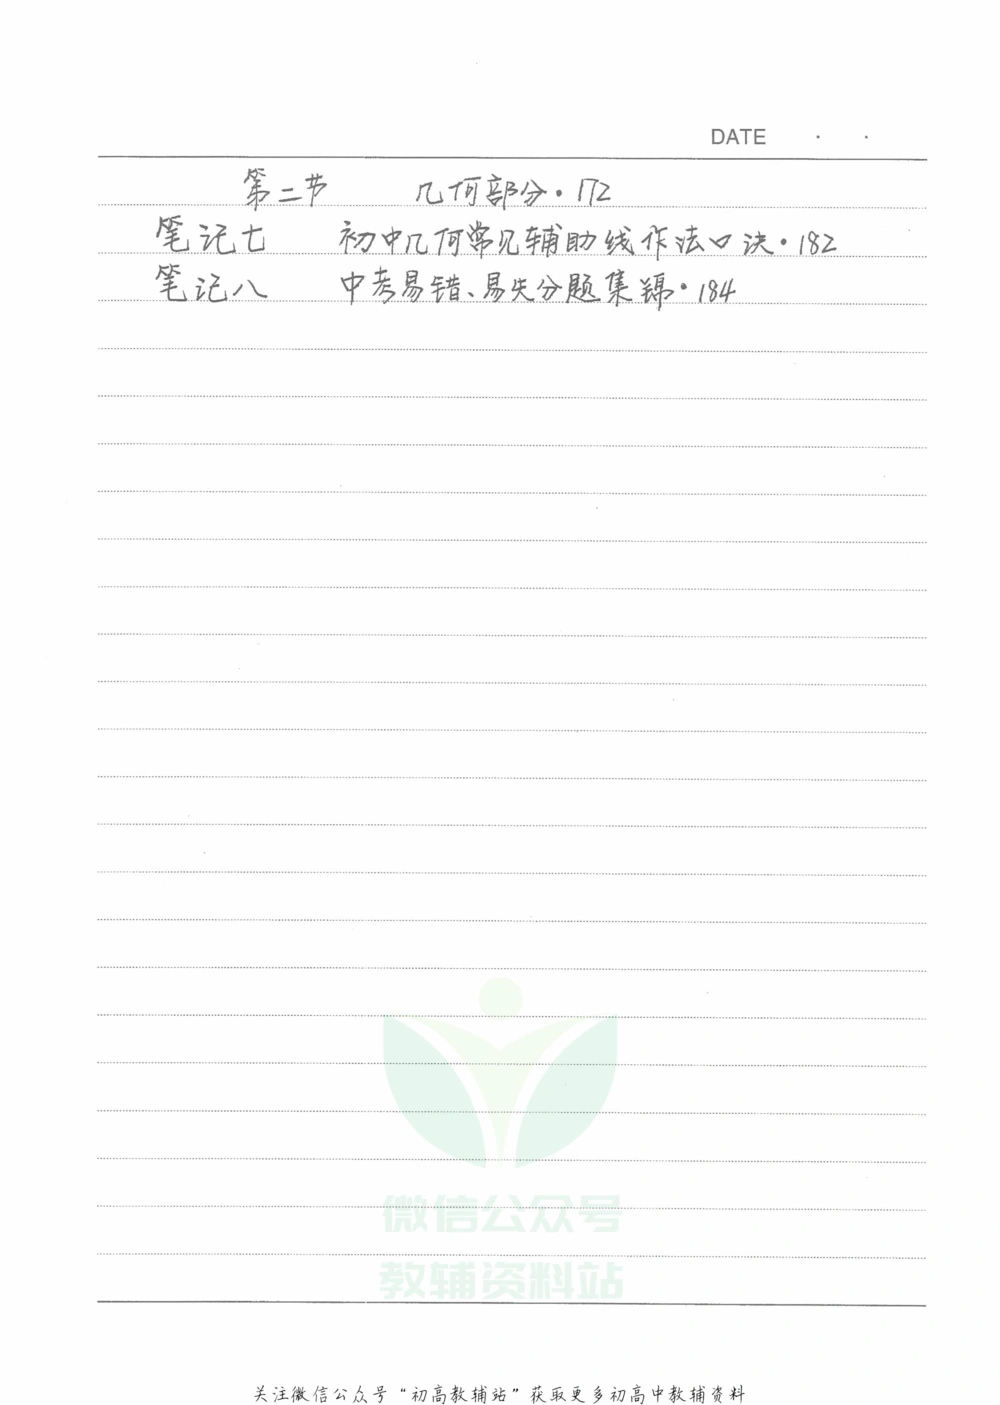 DATE · ·
第二节 几何部分·172
笔记七 初中几何常见辅助线作法口决·182
笔记八 中考易错、易失分题集锦·184
微信公众号
教辅资料站
关注微信公众号“初高教辅站”获取更多初高中教辅资料